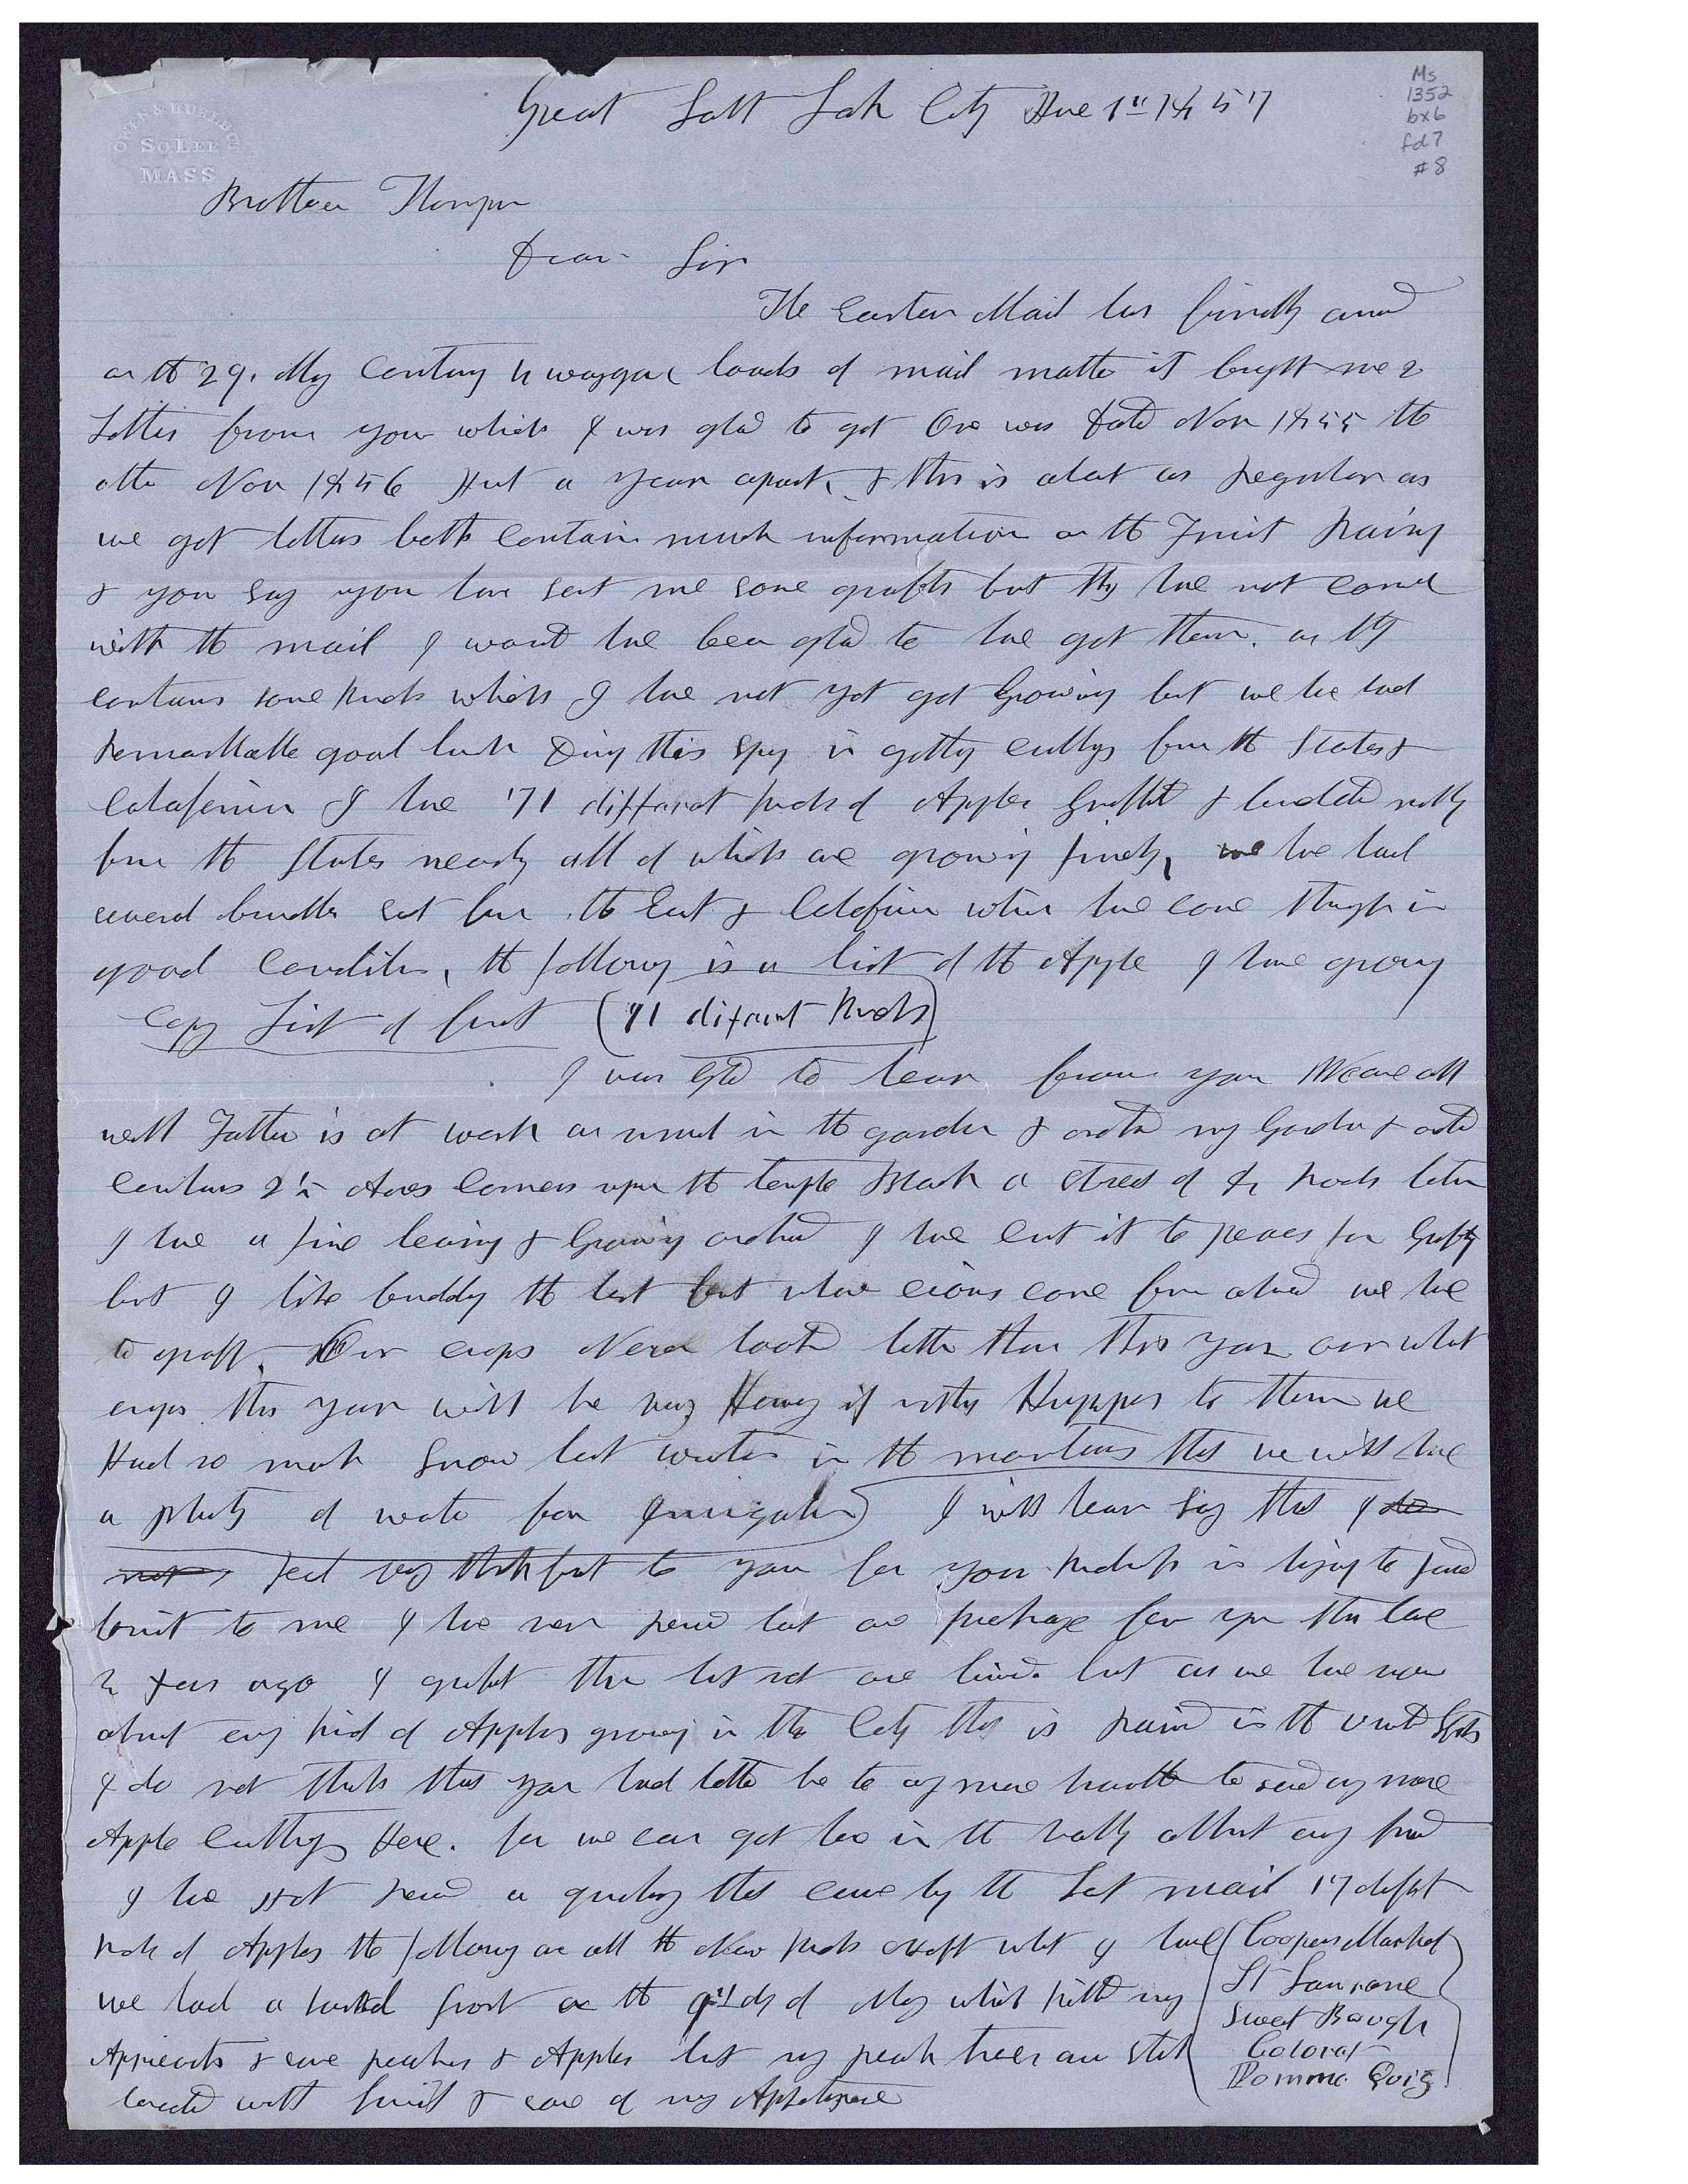 Ms
1352
bx6
fd7
#8
SO. LEE
MASS
Great Salt Lak City June 1st 1857
Brother Thompson
Dear Sir
The Eastern Mail has finally arived
on the 29. May Containg 4 waggon loads of mail matter it brought me 2
Letters from you which I was glad to get One was Dated Nov 1855 the
other Nov 1856 Just a year apart, & this is about as regular as
we get letters both contain much information on the Fruit raising
& you say you have sent me some grafts but they have not come
with the mail I would have been glad to have got them. as they
contains some kinds which I have not yet got Growing but we have had
remarkable good luck During this spring in getting cuttings from the States &
Calafornia I have 71 different kinds of Apples Grafted & budded mostly
from the States nearly all of which are growing finely, we have had
several bundles sent from the East & Calafornia which have come through in
good condition, the following is a list of the Apple I have growing
Copy List of fruit (71 difarnt kinds)
I was glad to hear from you We are all
well Father is at work as usual in the garden & orchard my Garden & orchard
contains 2½ Acres corners upon the temple Block a street of 8 rods between
I have a fine bearing & Growing orchard I have cut it to peaces for Grafting
but I like budding the best but when cions come from abroad we have
to graft. Our crops Never looked better than this year our wheat
crops this year will be very Heavy if nothing Happens to them we
Had so much snow last winter in the mountains that we will have
a plenty of water for Irrigation I will hear say that I do
not feel very thankful to you for your kindness in trying to send
fruit to me I have never received but one package from you that came
2 years ago I grafted them but not one lived. but as we have now
about evry kind of Apples growing in the City that is raised in the United States
I do not think that you had better be to any more trouble to send any more
Apple cuttings Here. for we can get here in the vally about any kind
I have just received a package that came by the last mail 17 different
kinds of Apples the following are all the New kinds except what I have (Coopers Market
St Lawrance
Sweet Bough
Colorat
Pomme Gris
we had a hard frost on the 9th day of May which killed my
Appricots & some peaches & Apples but my peach trees are still
loaded with fruit & some of my Appletrees